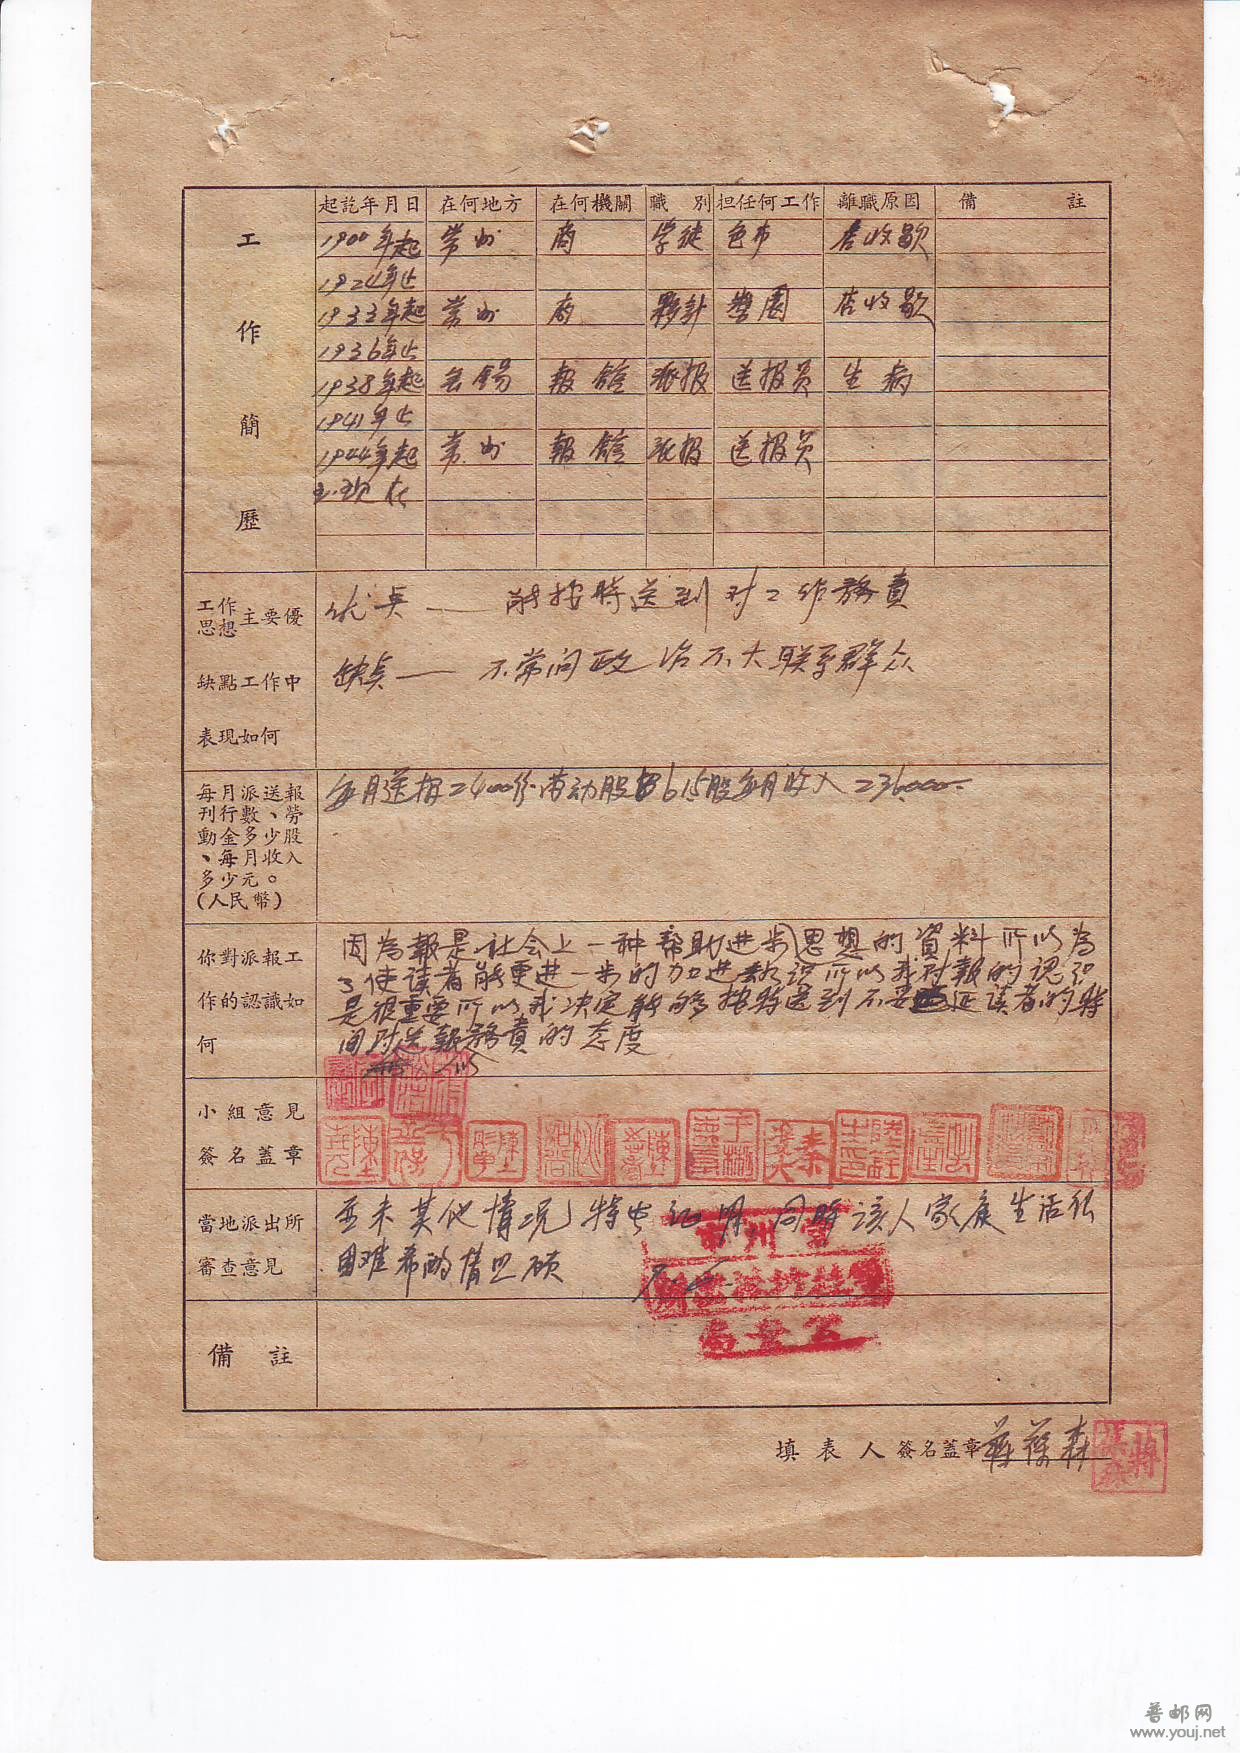 起訖年月日 在何地方 在何機關 職別 担任何工作 離職原因 備註
工作簡歷
1900年起 常州 商 学徒 色布 店收歇
1924年止
1933年起 常州 商 夥計 醬園 店收歇
1936年止
1938年起 無錫 報舘 派报 送报员 生病
1941年止
1944年起 常州 報舘 派报 送报员
至現在
工作思想主要優
缺點工作中
表現如何
优点—— 能按時送到 对工作務責
缺点—— 不常问政治不大联系群众
每月派送報
刊行數、勞
動金多少股
、每月收入
多少元。
(人民幣)
每月送报2400份劳动股 615股每月收入 236000-
你對派報工
作的認識如
何
因為報是社会上一种帮助进步思想的資料所以為
了使读者能更进一步的力口进 識所以我对報的認识
是很重要所以我决定能够按時送到不要 延读者的時
间对送報務責的态度
小組意見
簽名蓋章
當地派出所
審查意見
並未其他情况 特此证明,同時该人家庭生活很
困难希酌情照顾
常州市
公安局
備註
填表人簽名蓋章 蔣葆森
普邮网
www.youj.net